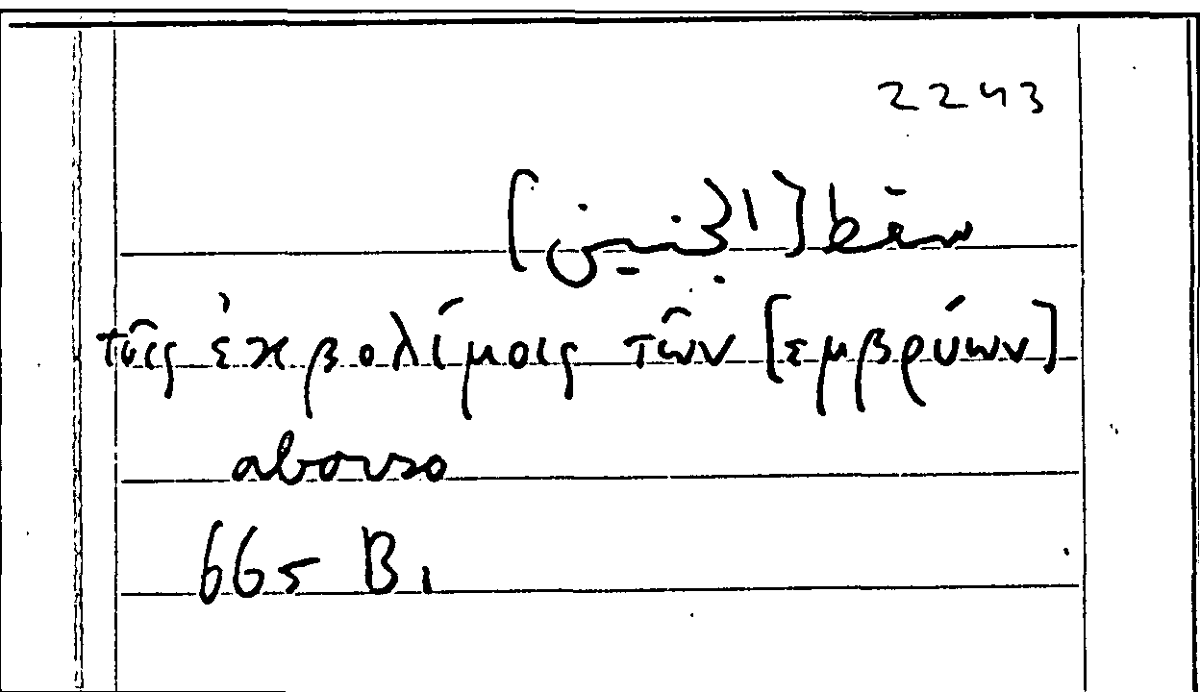 2243
سقط [الجنين]
τοῖς ἐκβολίμοις τῶν [εμβρύων]
aborso
665 B 1